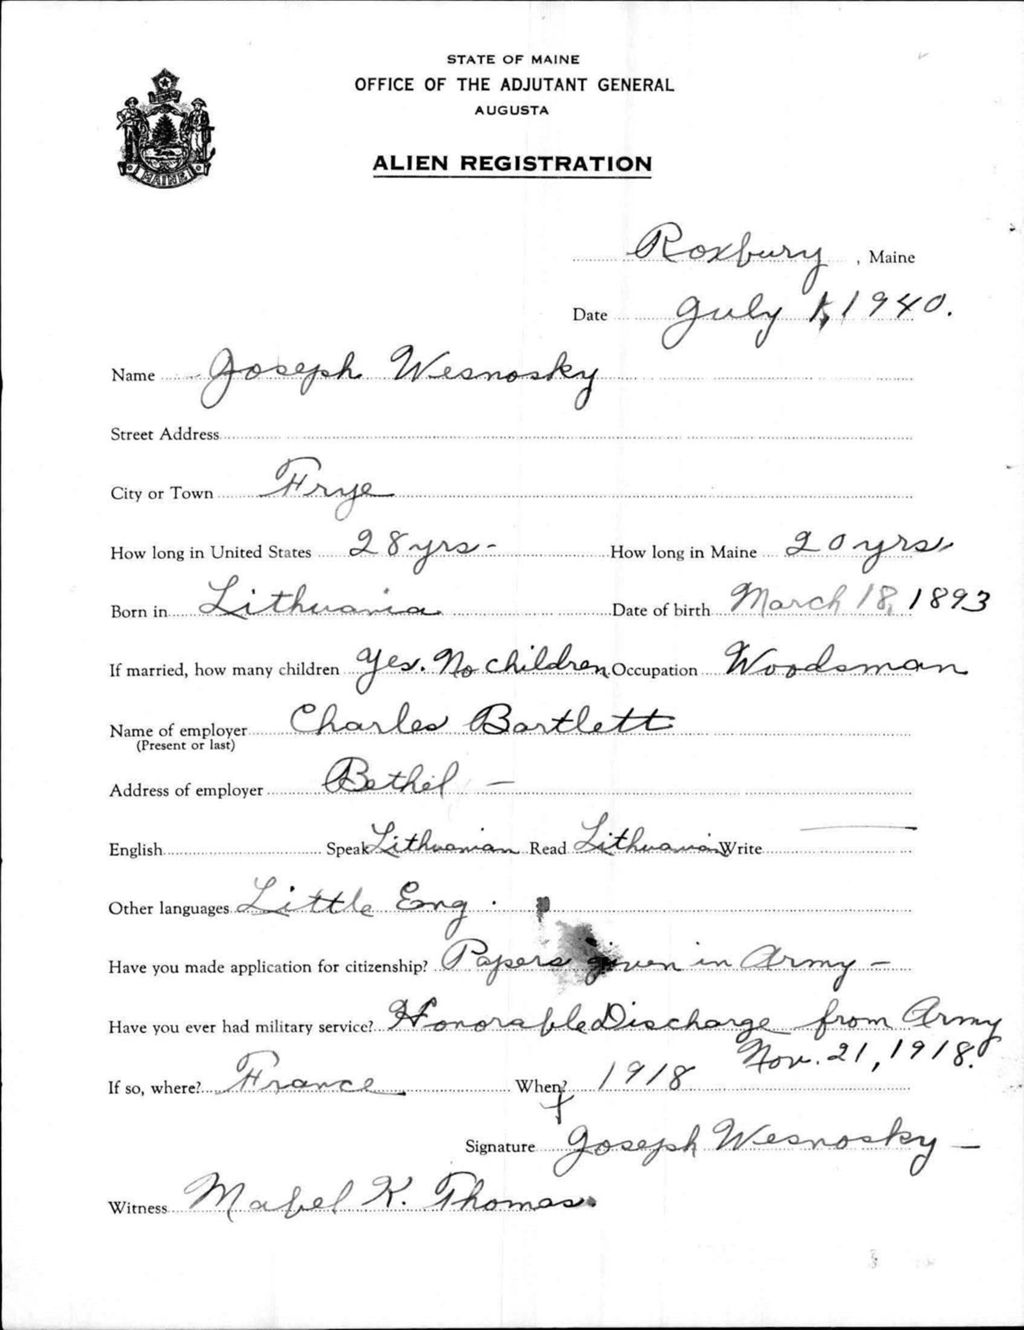 STATE OF MAINE
OFFICE OF THE ADJUTANT GENERAL
AUGUSTA
ALIEN REGISTRATION
MAINE
Roxbury, Maine
Date July 1, 1940.
Name Joseph Wesnosky
Street Address
City or Town Frye
How long in United States 28 yrs - How long in Maine 20 yrs.
Born in Lithuania Date of birth March 18, 1893
If married, how many children Yes. No children Occupation Woodsman
Name of employer Charles Bartlett
(Present or last)
Address of employer Bethel -
English Speak Lithuanian Read Lithuanian Write —
Other languages Little Eng.
Have you made application for citizenship? Papers given in Army -
Have you ever had military service? Honorable Discharge from Army
Nov. 21, 1918.
If so, where? France When? 1918
Signature Joseph Wesnosky -
Witness Mabel K. Thomas.